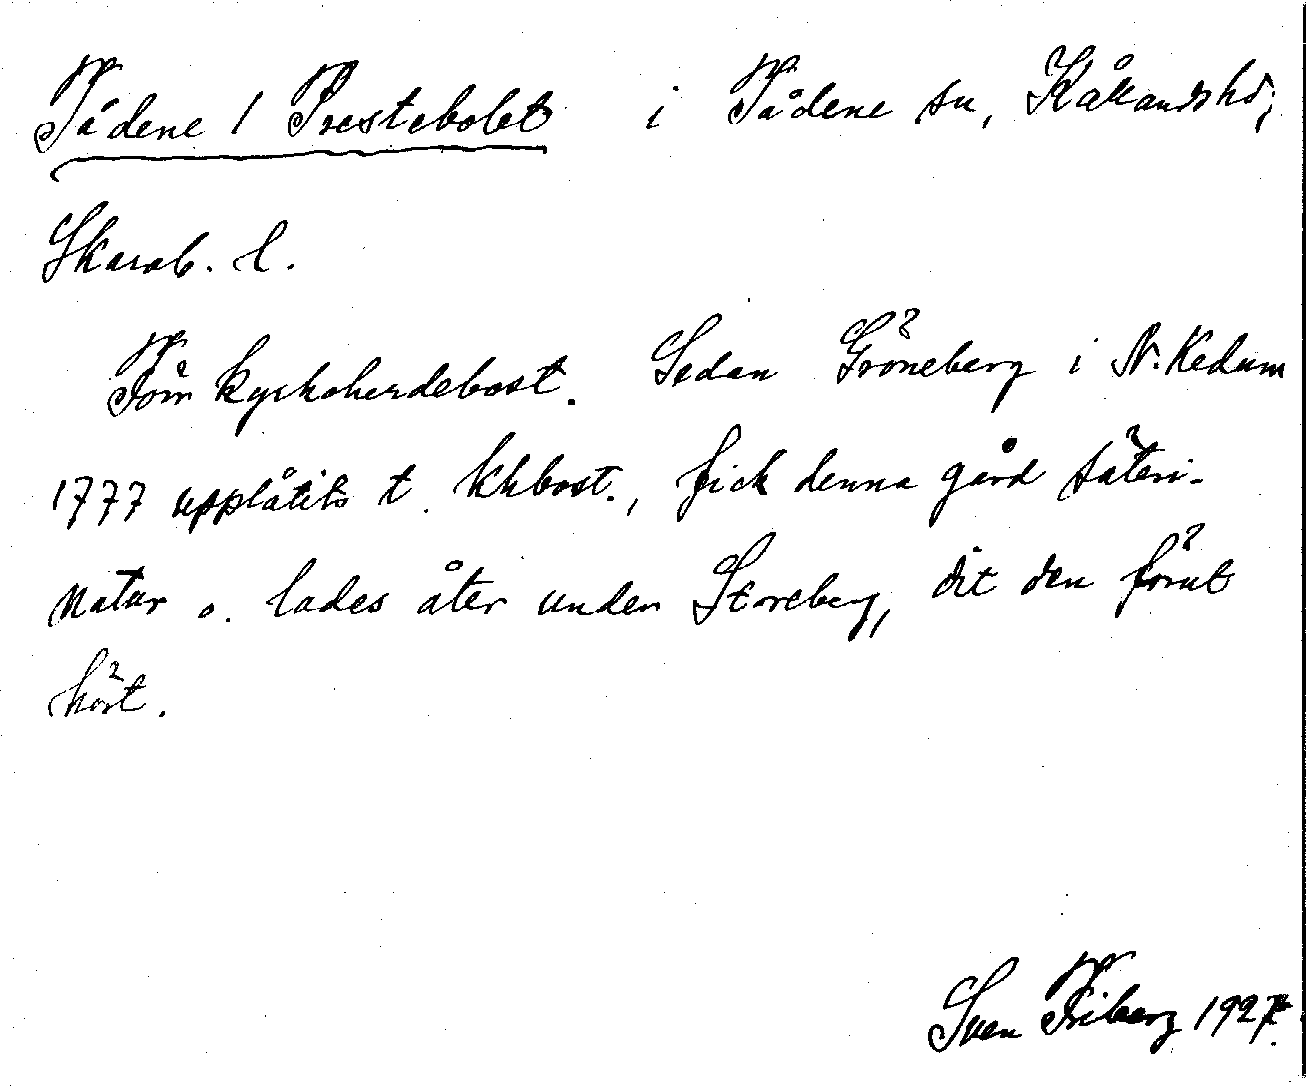 Tådene 1 Prestebolet i Tådene sn, Kåkands hd;
Skarab. l.
Förr kyrkoherdebost. Sedan Gröneberg i N. Kedum
1777 upplåtits t. khbost., fick denna gård säteri-
natur o. lades åter under Storeberg, dit den förut
hört.
Sven Friberg 1927.